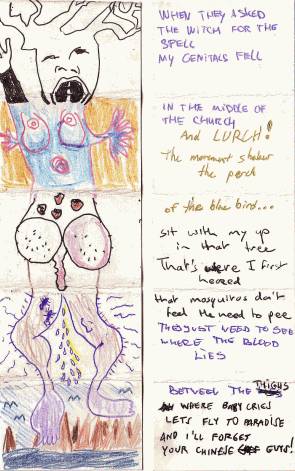 WHEN THEY ASKED
THE WITCH FOR THE
SPELL
MY GENITALS FELL
IN THE MIDDLE OF
THE CHURCH
And LURCH!
The movement shakes
the perch
of the blue bird...
sit with my up
in that tree
That's were I first
heared
that mosquitos don't
feel the need to pee
THEY JUST NEED TO SEE
WHERE THE BLOOD
LIES
BETWEEN THE THIGHS
WHERE BABY CRIES
LETS FLY TO PARADISE
AND I'LL FORGET
YOUR CHINESE GUTS!